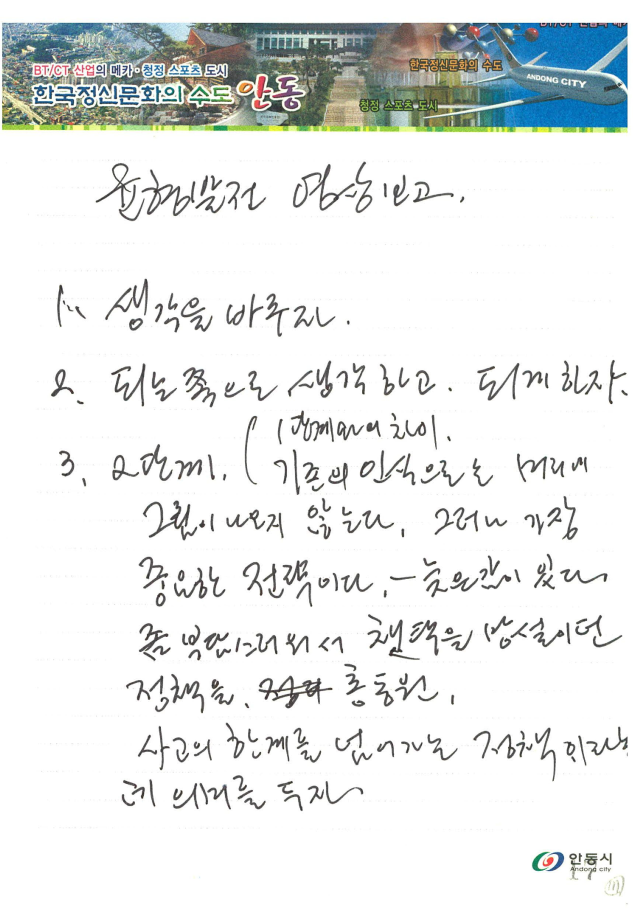 BT/CT 산업의 메카·청정 스포츠 도시
한국정신문화의 수도 안동
한국정신문화의 수도
청정 스포츠 도시
ANDONG CITY
균형발전 영상보고.
1. 생각을 바꾸자.
2. 되는 쪽으로 생각하고. 되게 하자.
3. 2단계. ( 1단계와의 차이.
기존의 인식으로는 머리에
그림이 나오지 않는다. 그러나 가장
중요한 전략이다. - 늦은감이 있다
좀 부담스러워서 채택을 망설이던
정책을, 총동원.
사고의 한계를 넘어가는 정책이라는
데 의미를 두자
안동시
Andong city
17